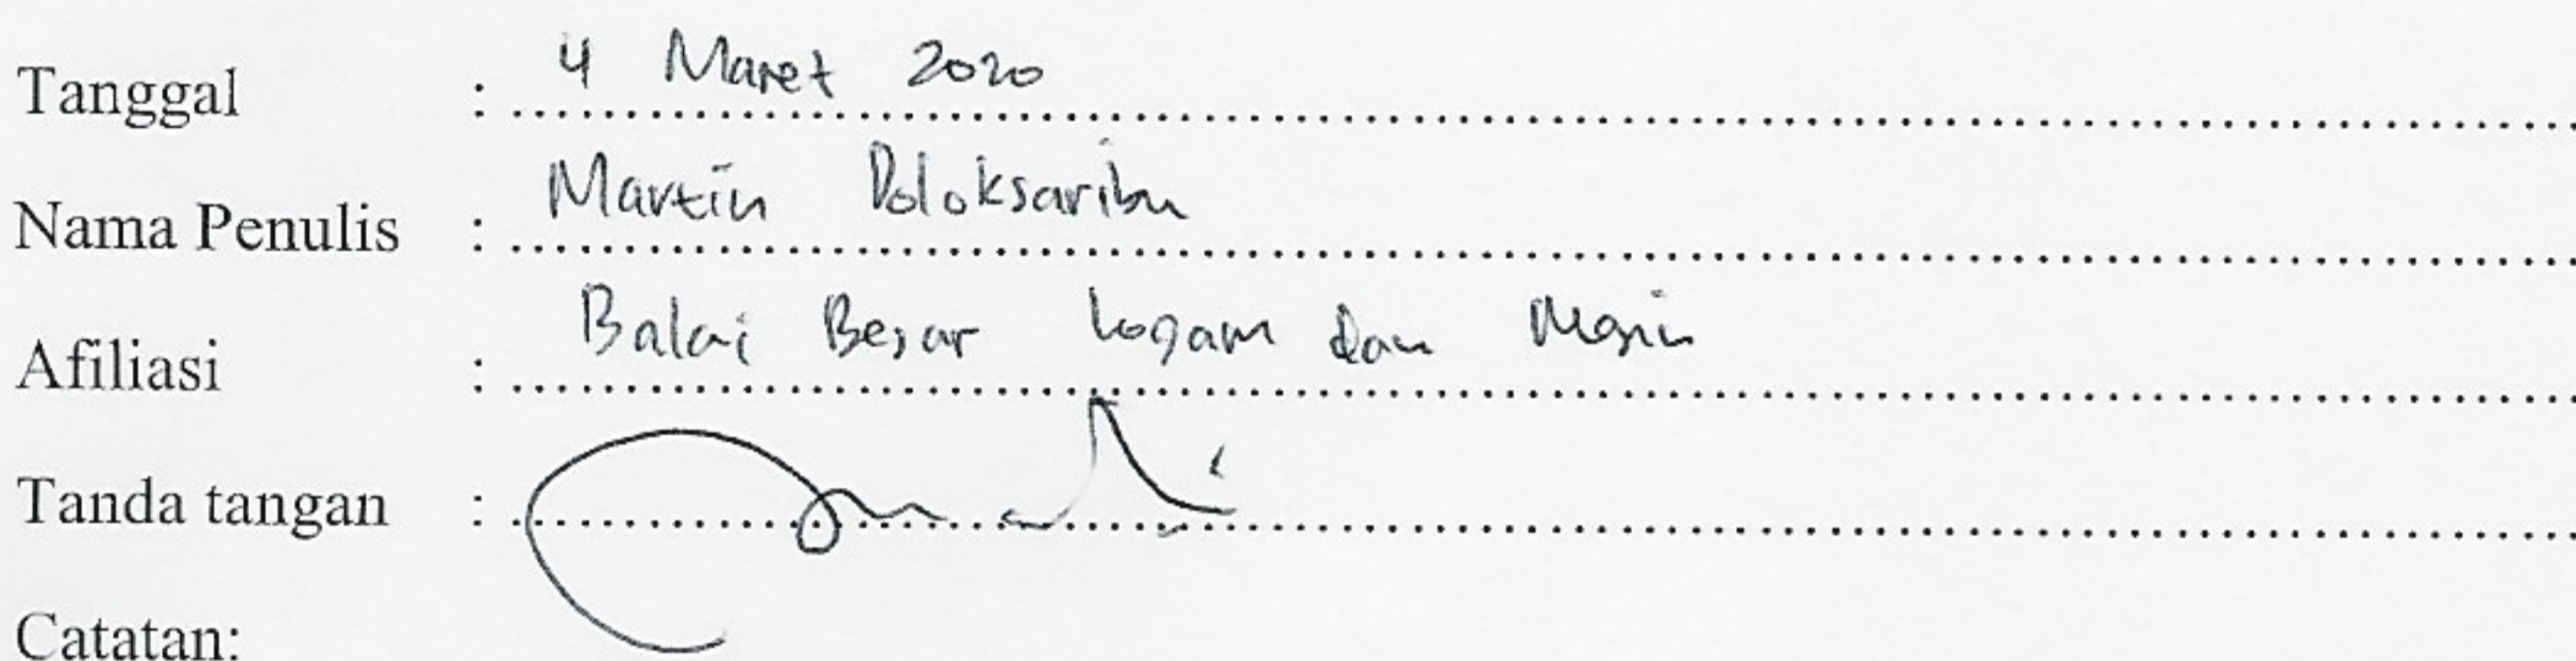 Tanggal : 4 Maret 2020
Nama Penulis : Martin Doloksaribu
Afiliasi : Balai Besar Logam dan Mesin
Tanda tangan :
Catatan: